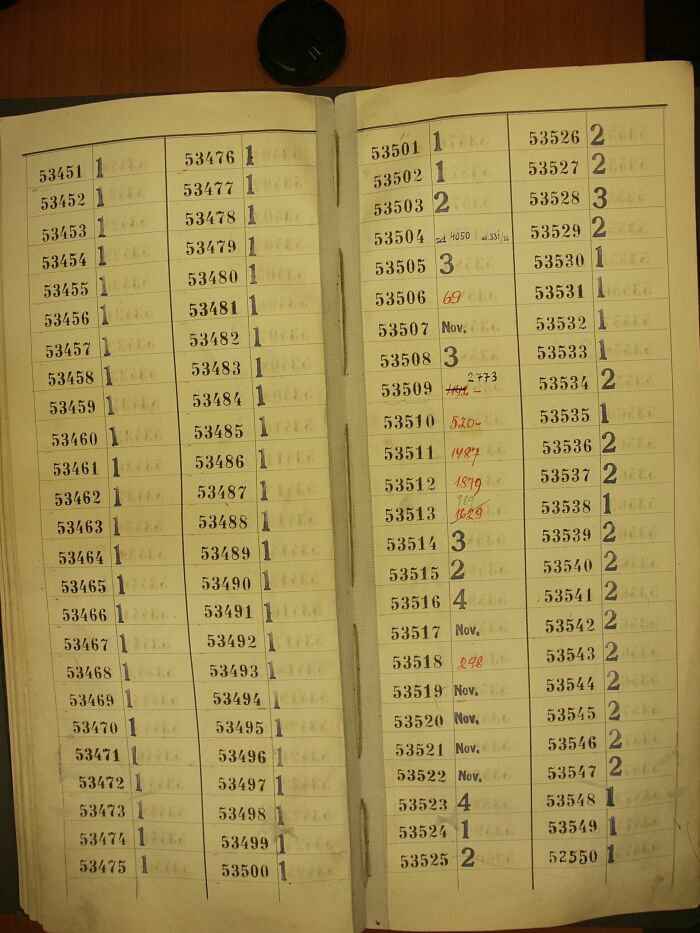 53451 1
53452 1
53453 1
53454 1
53455 1
53456 1
53457 1
53458 1
53459 1
53460 1
53461 1
53462 1
53463 1
53464 1
53465 1
53466 1
53467 1
53468 1
53469 1
53470 1
53471 1
53472 1
53473 1
53474 1
53475 1
53476 1
53477 1
53478 1
53479 1
53480 1
53481 1
53482 1
53483 1
53484 1
53485 1
53486 1
53487 1
53488 1
53489 1
53490 1
53491 1
53492 1
53493 1
53494 1
53495 1
53496 1
53497 1
53498 1
53499 1
53500 1
53501 1
53502 1
53503 2
53504 4050
53505 3
53506 69
53507 Nov.
53508 3
53509 2773
53510 520-
53511 1487
53512 1879
53513 1629
53514 3
53515 2
53516 4
53517 Nov.
53518 298
53519 Nov.
53520 Nov.
53521 Nov.
53522 Nov.
53523 4
53524 1
53525 2
53526 2
53527 2
53528 3
53529 2
53530 1
53531 1
53532 1
53533 1
53534 2
53535 1
53536 2
53537 2
53538 1
53539 2
53540 2
53541 2
53542 2
53543 2
53544 2
53545 2
53546 2
53547 2
53548 1
53549 1
52550 1